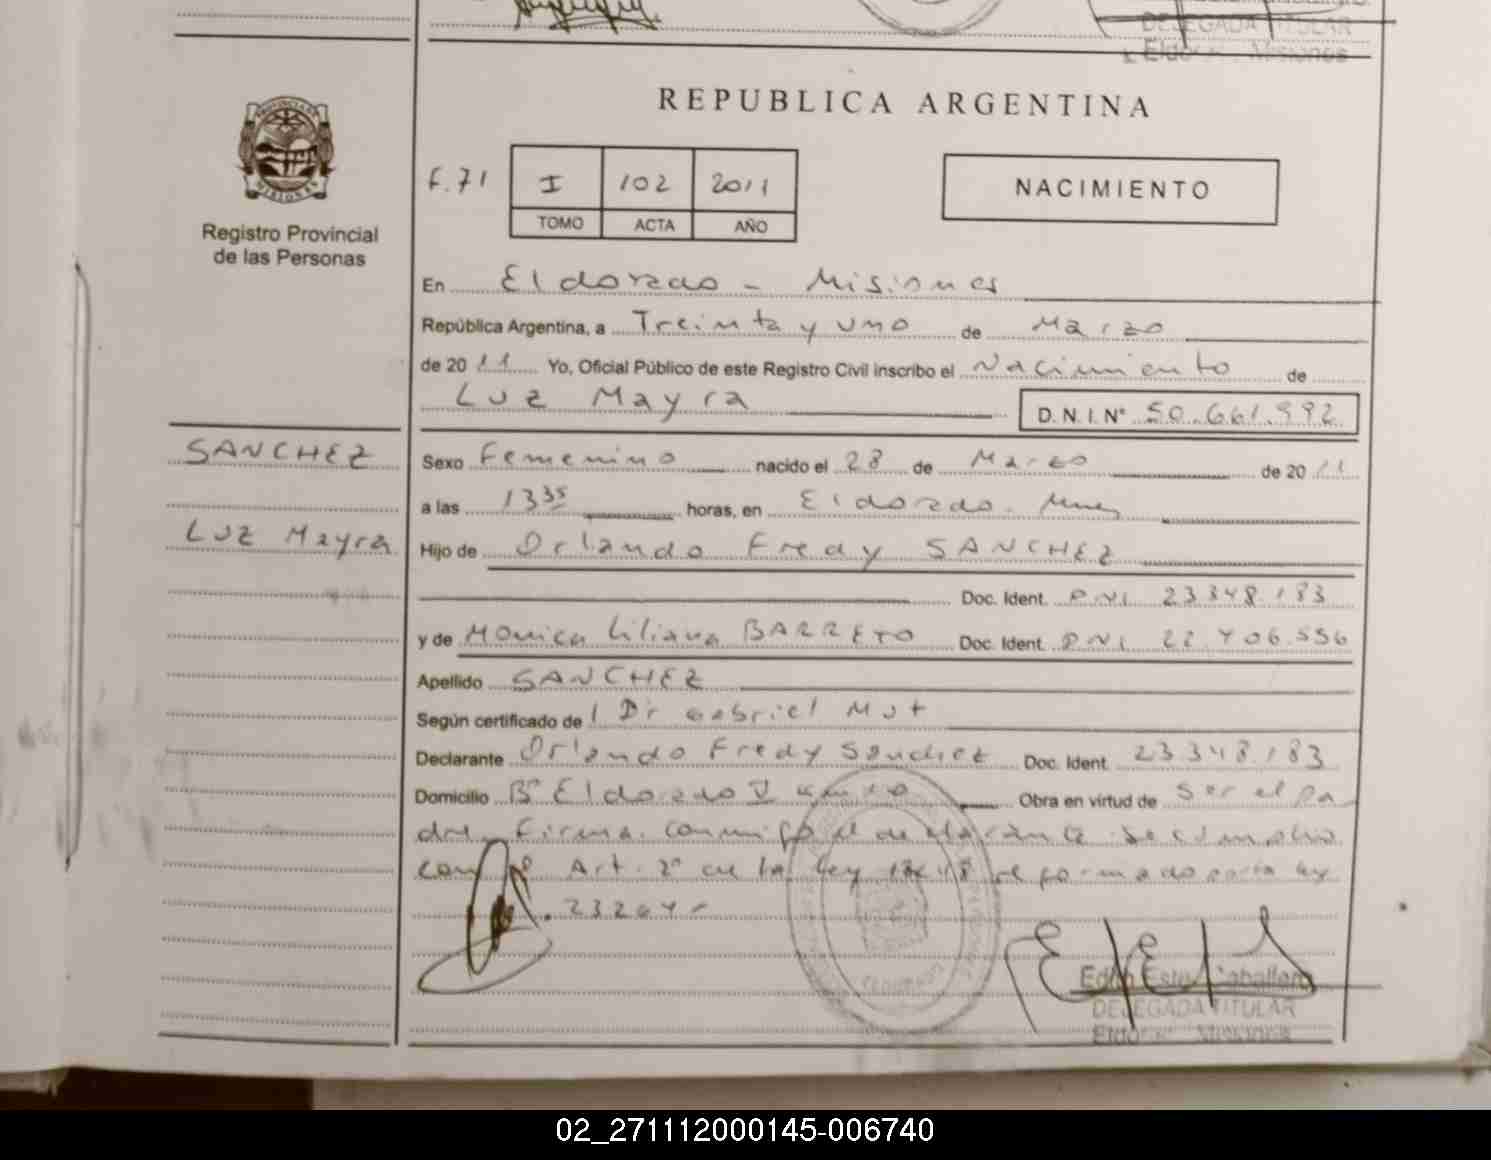 DELEGADA TITULAR
Eldorado Misiones
REPUBLICA ARGENTINA
PROVINCIA DE MISIONES
Registro Provincial
de las Personas
F. 71 I 102 2011
TOMO ACTA AÑO
NACIMIENTO
En Eldorado - Misiones
República Argentina, a Treinta y uno de Marzo
de 2011 Yo, Oficial Público de este Registro Civil inscribo el Nacimiento de
Luz Mayra D.N.I.N° 50.661.992
SANCHEZ
Luz Mayra
Sexo Femenino nacido el 28 de Marzo de 2011
a las 13 35 horas, en Eldorado. Mnes
Hijo de Orlando Fredy SANCHEZ
Doc. Ident. D.N.I 23.348.183
y de Monica Liliana BARRETO Doc. Ident. DNI 22.406.556
Apellido SANCHEZ
Según certificado de l Dr Gabriel Mut
Declarante Orlando Fredy Sanchez Doc. Ident. 23.348.183
Domicilio B° Eldorado Obra en virtud de ser el pa
dre. Firma conmigo el declarante. Se cumplio
con Art. 2° de la Ley reformado por la ley
23264
ELDORADO
Caballero
DELEGADA TITULAR
Eldorado Misiones
02_271112000145-006740